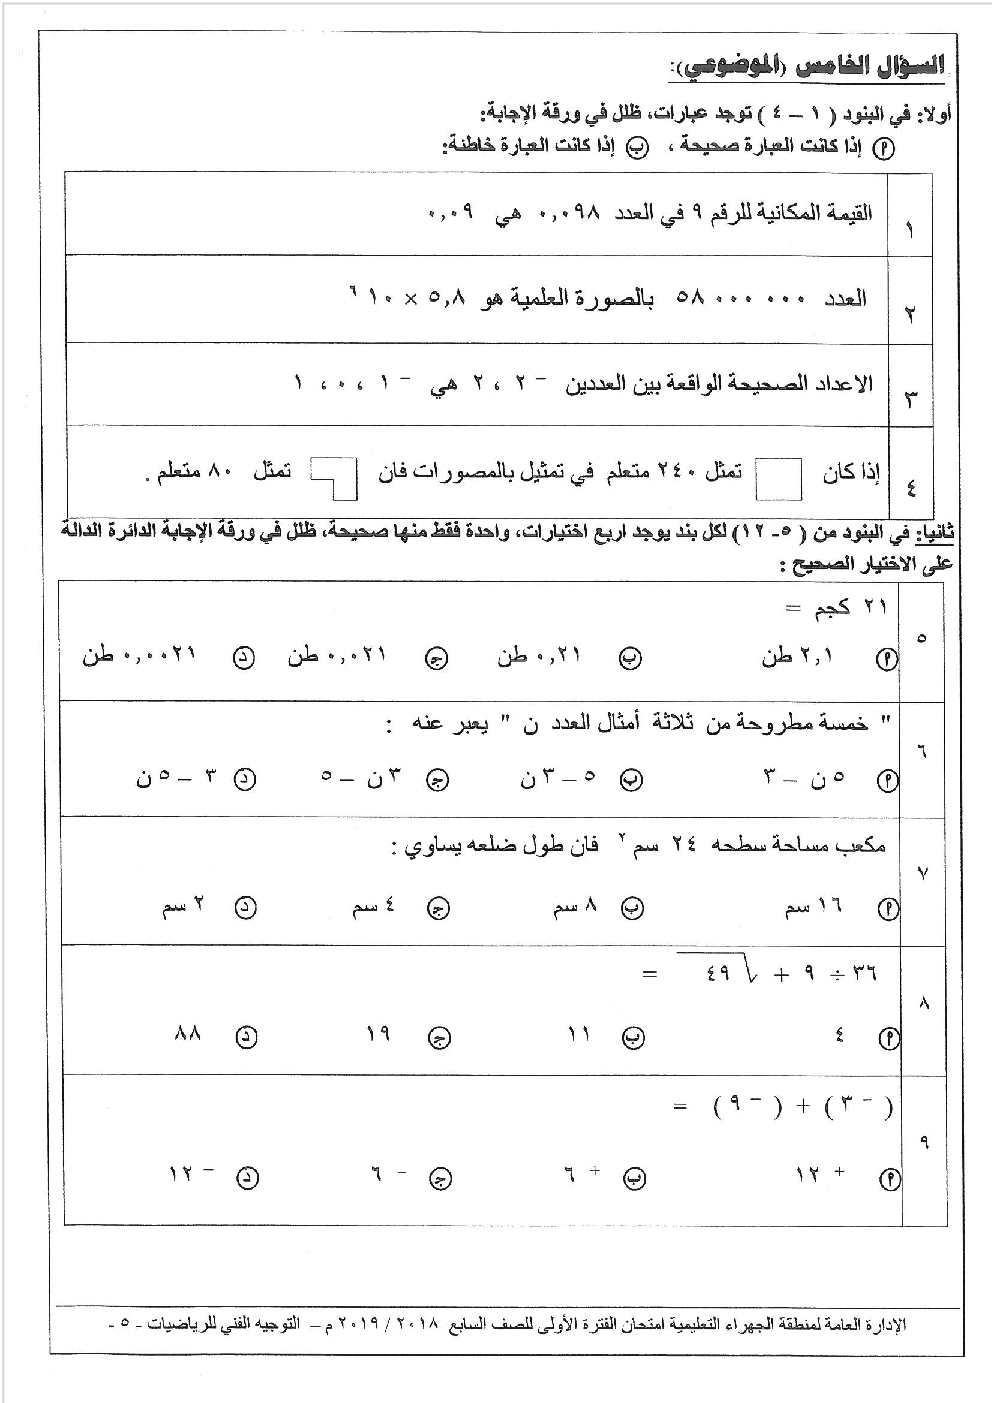 السؤال الخامس (الموضوعي):
أولا: في البنود ( ١ – ٤ ) توجد عبارات، ظلل في ورقة الإجابة:
أ إذا كانت العبارة صحيحة ، ب إذا كانت العبارة خاطئة:
١ القيمة المكانية للرقم ٩ في العدد ٠,٠٩٨ هي ٠,٠٩
٢ العدد ٥٨٠٠٠٠٠٠ بالصورة العلمية هو ٥,٨ × ١٠ ٦
٣ الاعداد الصحيحة الواقعة بين العددين −٢ ، ٢ هي −١ ، ٠ ، ١
٤ إذا كان تمثل ٢٤٠ متعلم في تمثيل بالمصورات فان تمثل ٨٠ متعلم .
ثانيا: في البنود من ( ٥- ١٢) لكل بند يوجد اربع اختيارات، واحدة فقط منها صحيحة، ظلل في ورقة الإجابة الدائرة الدالة
على الاختيار الصحيح :
٥ ٢١ كجم =
أ ٢,١ طن ب ٠,٢١ طن ج ٠,٠٢١ طن د ٠,٠٠٢١ طن
٦ " خمسة مطروحة من ثلاثة أمثال العدد ن " يعبر عنه :
أ ٥ ن – ٣ ب ٥ – ٣ ن ج ٣ ن – ٥ د ٣ – ٥ ن
٧ مكعب مساحة سطحه ٢٤ سم ٢ فان طول ضلعه يساوي :
أ ١٦ سم ب ٨ سم ج ٤ سم د ٢ سم
٨ ٣٦ ÷ ٩ + √٤٩ =
أ ٤ ب ١١ ج ١٩ د ٨٨
٩ ( −٣ ) + ( −٩ ) =
أ +١٢ ب +٦ ج −٦ د −١٢
الإدارة العامة لمنطقة الجهراء التعليمية امتحان الفترة الأولى للصف السابع ٢٠١٨ / ٢٠١٩ م – التوجيه الفني للرياضيات - ٥ -